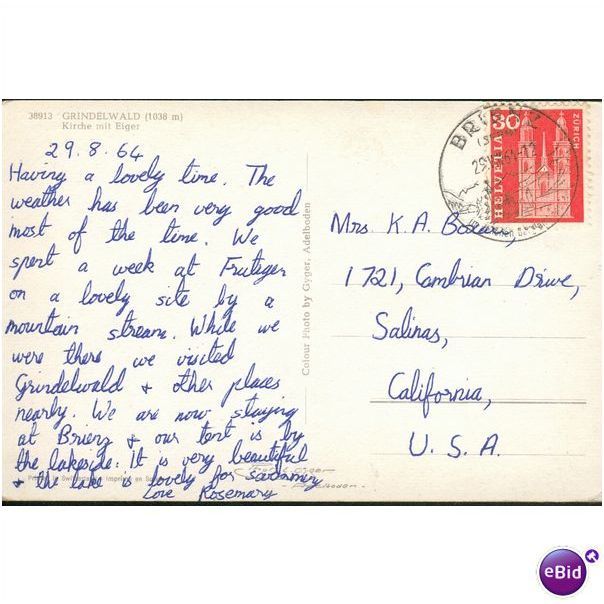 38913 GRINDELWALD (1038 m)
Kirche mit Eiger
29.8.64
Having a lovely time. The
weather has been very good
most of the time. We
spent a week at Frutigen
on a lovely site by a
mountain stream. While we
were there we visited
Grindelwald + other places
nearby. We are now staying
at Brienz + our tent is by
the lakeside. It is very beautiful
+ the lake is lovely for swimming
Love Rosemary
Colour Photo by Gyger, Adelboden
BRIENZ
HELVETIA 30
ZÜRICH
Mrs. K. A.
1721, Cambrian Drive,
Salinas,
California,
U. S. A.
Adelboden
eBid